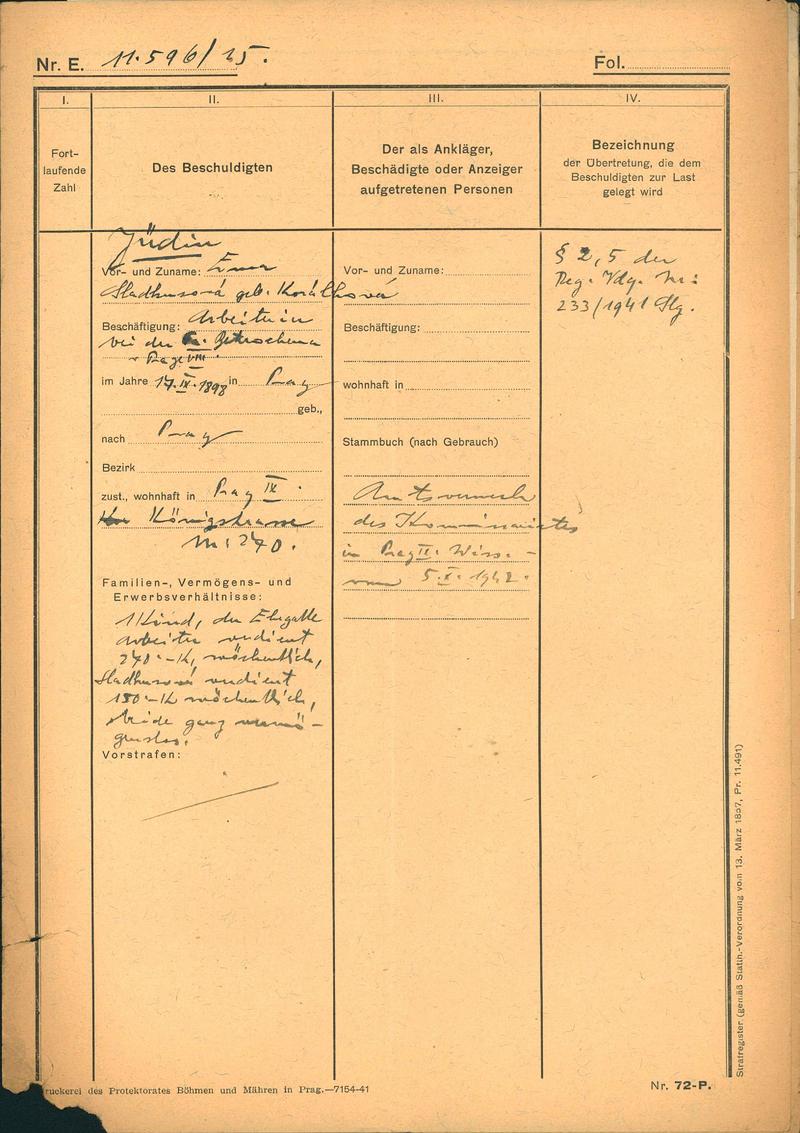 Nr. E. 11.596/25.
Fol.
I.
II.
III.
IV.
Fort-
laufende
Zahl
Des Beschuldigten
Der als Ankläger,
Beschädigte oder Anzeiger
aufgetretenen Personen
Bezeichnung
der Übertretung, die dem
Beschuldigten zur Last
gelegt wird
Jüdin
Vor- und Zuname: Ema
geb.
Beschäftigung: Arbeiterin
bei der
Prag VIII.
im Jahre 17.IX.1898 in Prag
geb.,
nach Prag
Bezirk
zust., wohnhaft in Prag IX.
Königstrasse
Nr: 240.
Familien-, Vermögens- und
Erwerbsverhältnisse:
1 Kind, der Ehegatte
Arbeiter verdient
240·-K, wöchentlich,
verdient
180·-K wöchentlich,
beide ganz vermö-
genslos.
Vorstrafen:
Vor- und Zuname:
Beschäftigung:
wohnhaft in
Stammbuch (nach Gebrauch)
Amtsvermerk
des Kommissariates
in Prag II.
vom 5.X.1942.
§ 2, 5 der
Reg. Vdg. Nr:
233/1941 Slg.
Strafregister. (gemäß Statth.-Verordnung vom 13. März 1857, Pr. 11.491)
ruckerei des Protektorates Böhmen und Mähren in Prag.—7154-41
Nr. 72-P.